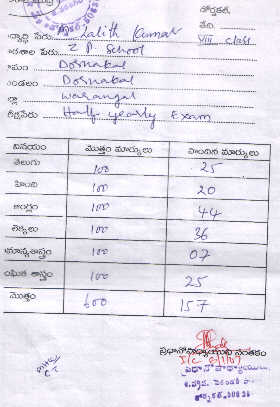 ద్యార్థి పేరు Lalith Kumar
తేది
VIII class
ఠశాల పేరు Z P. School
Dornakal
ండలం Dornakal
ల్లా Warangal
పరీక్షపేరు Half yearly Exam
విషయం మొత్తం మార్కులు పొందిన మార్కులు
తెలుగు 100 25
హింది 100 20
ఆంగ్లం 100 44
లెక్కలు 100 36
మాన్యశాస్త్రం 100 07
ంఘిక శాస్త్రం 100 25
మొత్తం 600 157
ప్రధానోపాధ్యాయుని సంతకం
ప్రధానోపాధ్యాయులు